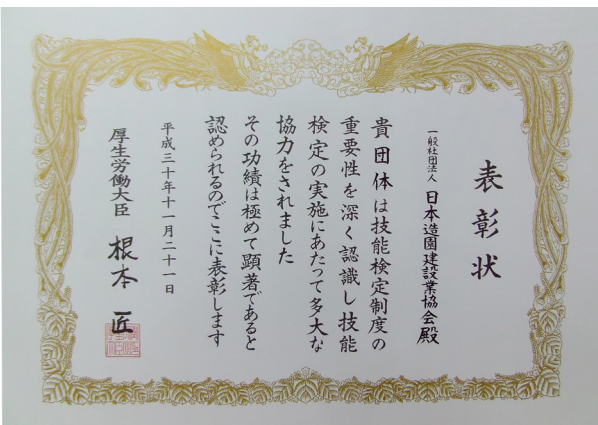 表彰状
一般社団法人 日本造園建設業協会殿
貴団体は技能検定制度の
重要性を深く認識し技能
検定の実施にあたって多大な
協力をされました
その功績は極めて顕著であると
認められるのでここに表彰します
平成三十年十一月二十一日
厚生労働大臣 根本匠